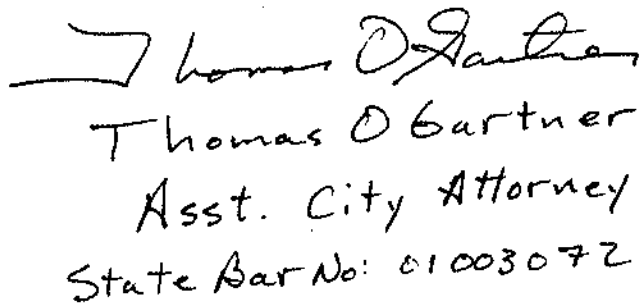 Thomas O Gartner
Thomas O Gartner
Asst. City Attorney
State Bar No: 01003072